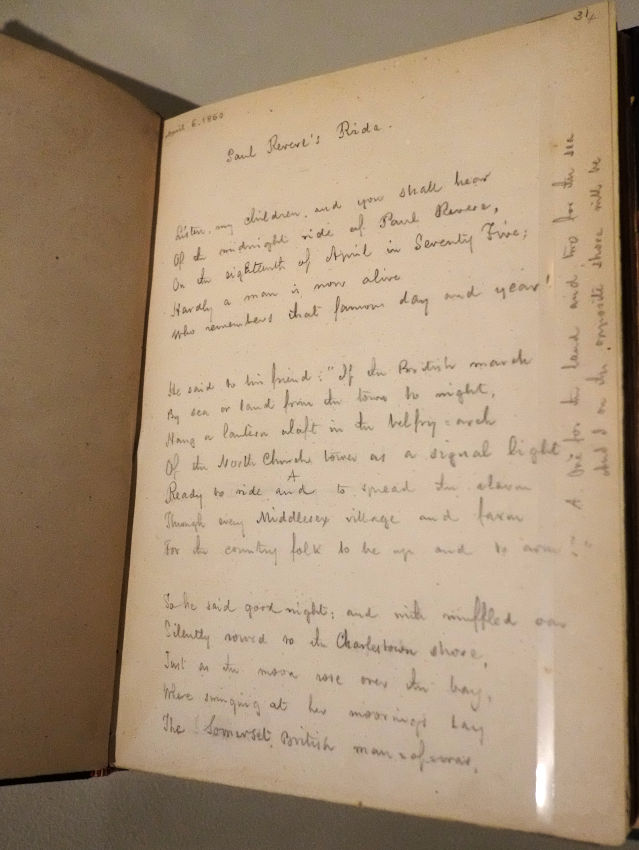 April 6. 1860
31
Paul Revere's Ride.
Listen, my children, and you shall hear
Of the midnight ride of Paul Revere,
On the eighteenth of April in Seventy Five;
Hardly a man is now alive
Who remembers that famous day and year!
He said to his friend: "If the British march
By sea or land from the town to night,
Hang a lantern aloft in the belfry-arch
Of the North Church tower as a signal light
A
Ready to ride and to spread the alarm
Through every Middlesex village and farm
For the country folk to be up and to arm."
So he said good night; and with muffled oar
Silently rowed to the Charlestown shore,
Just as the moon rose over the bay,
Where swinging at her moorings lay
The Somerset, British man-of-war,
A. One for the land and two for the sea
And I on the opposite shore will be